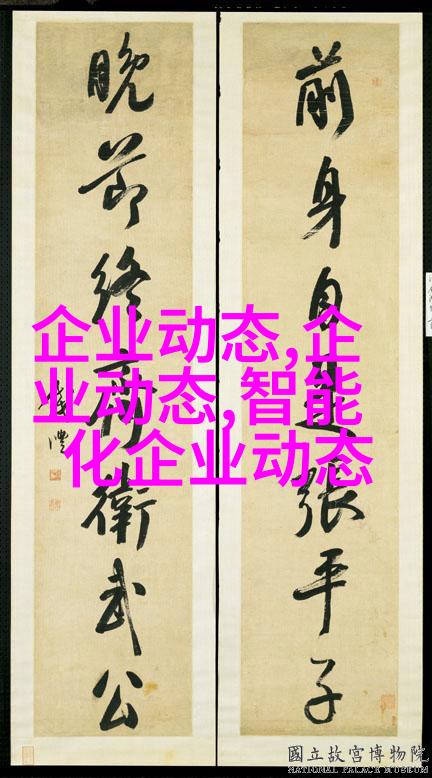 前身自是張平子
晚節終衛武公
錢灃
企业动态,企
业动态,智能
化企业动态
國立故宮博物院
NATIONAL PALACE MUSEUM